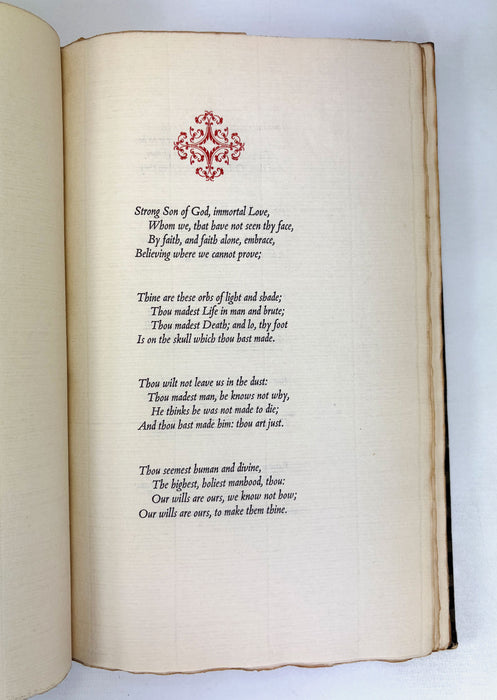 Strong Son of God, immortal Love,
Whom we, that have not seen thy face,
By faith, and faith alone, embrace,
Believing where we cannot prove;
Thine are these orbs of light and shade;
Thou madest Life in man and brute;
Thou madest Death; and lo, thy foot
Is on the skull which thou hast made.
Thou wilt not leave us in the dust:
Thou madest man, he knows not why,
He thinks he was not made to die;
And thou hast made him: thou art just.
Thou seemest human and divine,
The highest, holiest manhood, thou:
Our wills are ours, we know not how;
Our wills are ours, to make them thine.